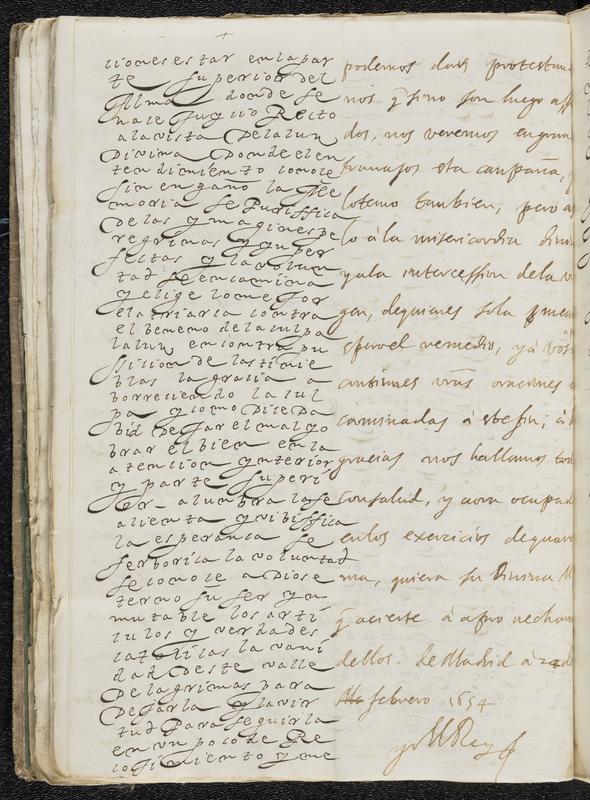 ciones estar en la par
te superior del
Alma donde se
nace su yuid Recto
a la vista De la lun
Divina Donde el en
tendimiento conoce
sin engaño la Me
moria se Puriffica
De las ymagines pe
regrinas y ynper
fectas y la volun
tad se encamina
y elige lo mejor
el a triaca contra
el beneno de la culpa
la lun en contra pu
ssicion de las tinie
blas la gracia a
borreciendo la cul
pa y como Dice Da
bid Dejar el mal y o
brar el bien en la
atencion ynterior
y parte superi
or alumbra la fe
alienta y vibiffica
la esperanca se
ferboriça la voluntad
se conoce a Dios e
terno su ser yn
mutable los arti
culos y verdades
catolicas la vani
dad Deste valle
De lagrimas para
Dejarla y la vir
tud Para seguirla
en vn poco de Re
cojimiento y me
podemos dar protestan
nos q si no son luego ass
dos, nos veremos en gran
trauajos esta campaña,
lo temo tambien, pero a
lo â la misericordia divi
y a la intercession de la v
gen, de quienes sola
espero el remedio, y â vos
oraciones
caminadas â este fin; â
gracias nos hallamos tod
con salud, y aora ocupad
en los exercicios de quare
ma, quiera su Divina M
q acierte â aprouechar
dellos. de Madrid â 24 de
febrero 1654
yo el Rey